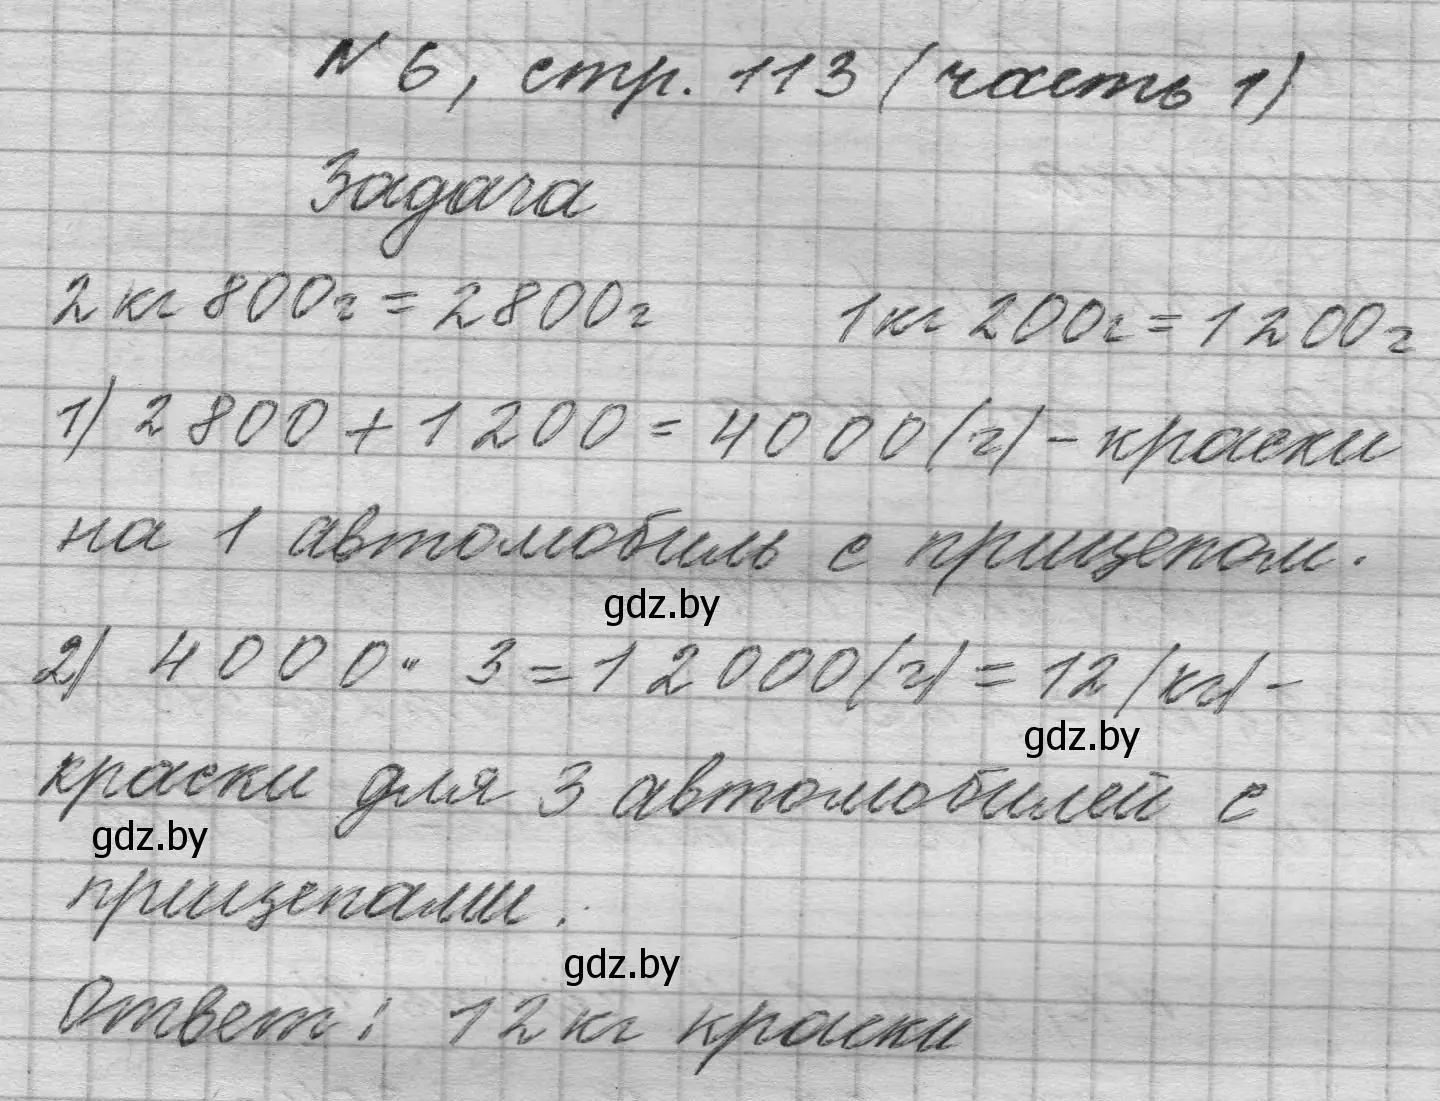 № 6, стр. 113 (часть 1)
Задача
2 кг 800 г = 2800 г 1 кг 200 г = 1200 г
1) 2800 + 1200 = 4000 (г) - краски
на 1 автомобиль с прицепом.
gdz.by
2) 4000 · 3 = 12000 (г) = 12 (кг) -
gdz.by
краски для 3 автомобилей с
gdz.by
прицепами.
gdz.by
Ответ: 12 кг краски